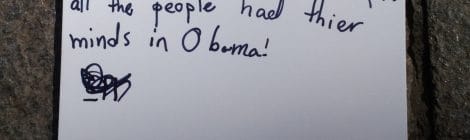 all the people had thier
minds in Obama!